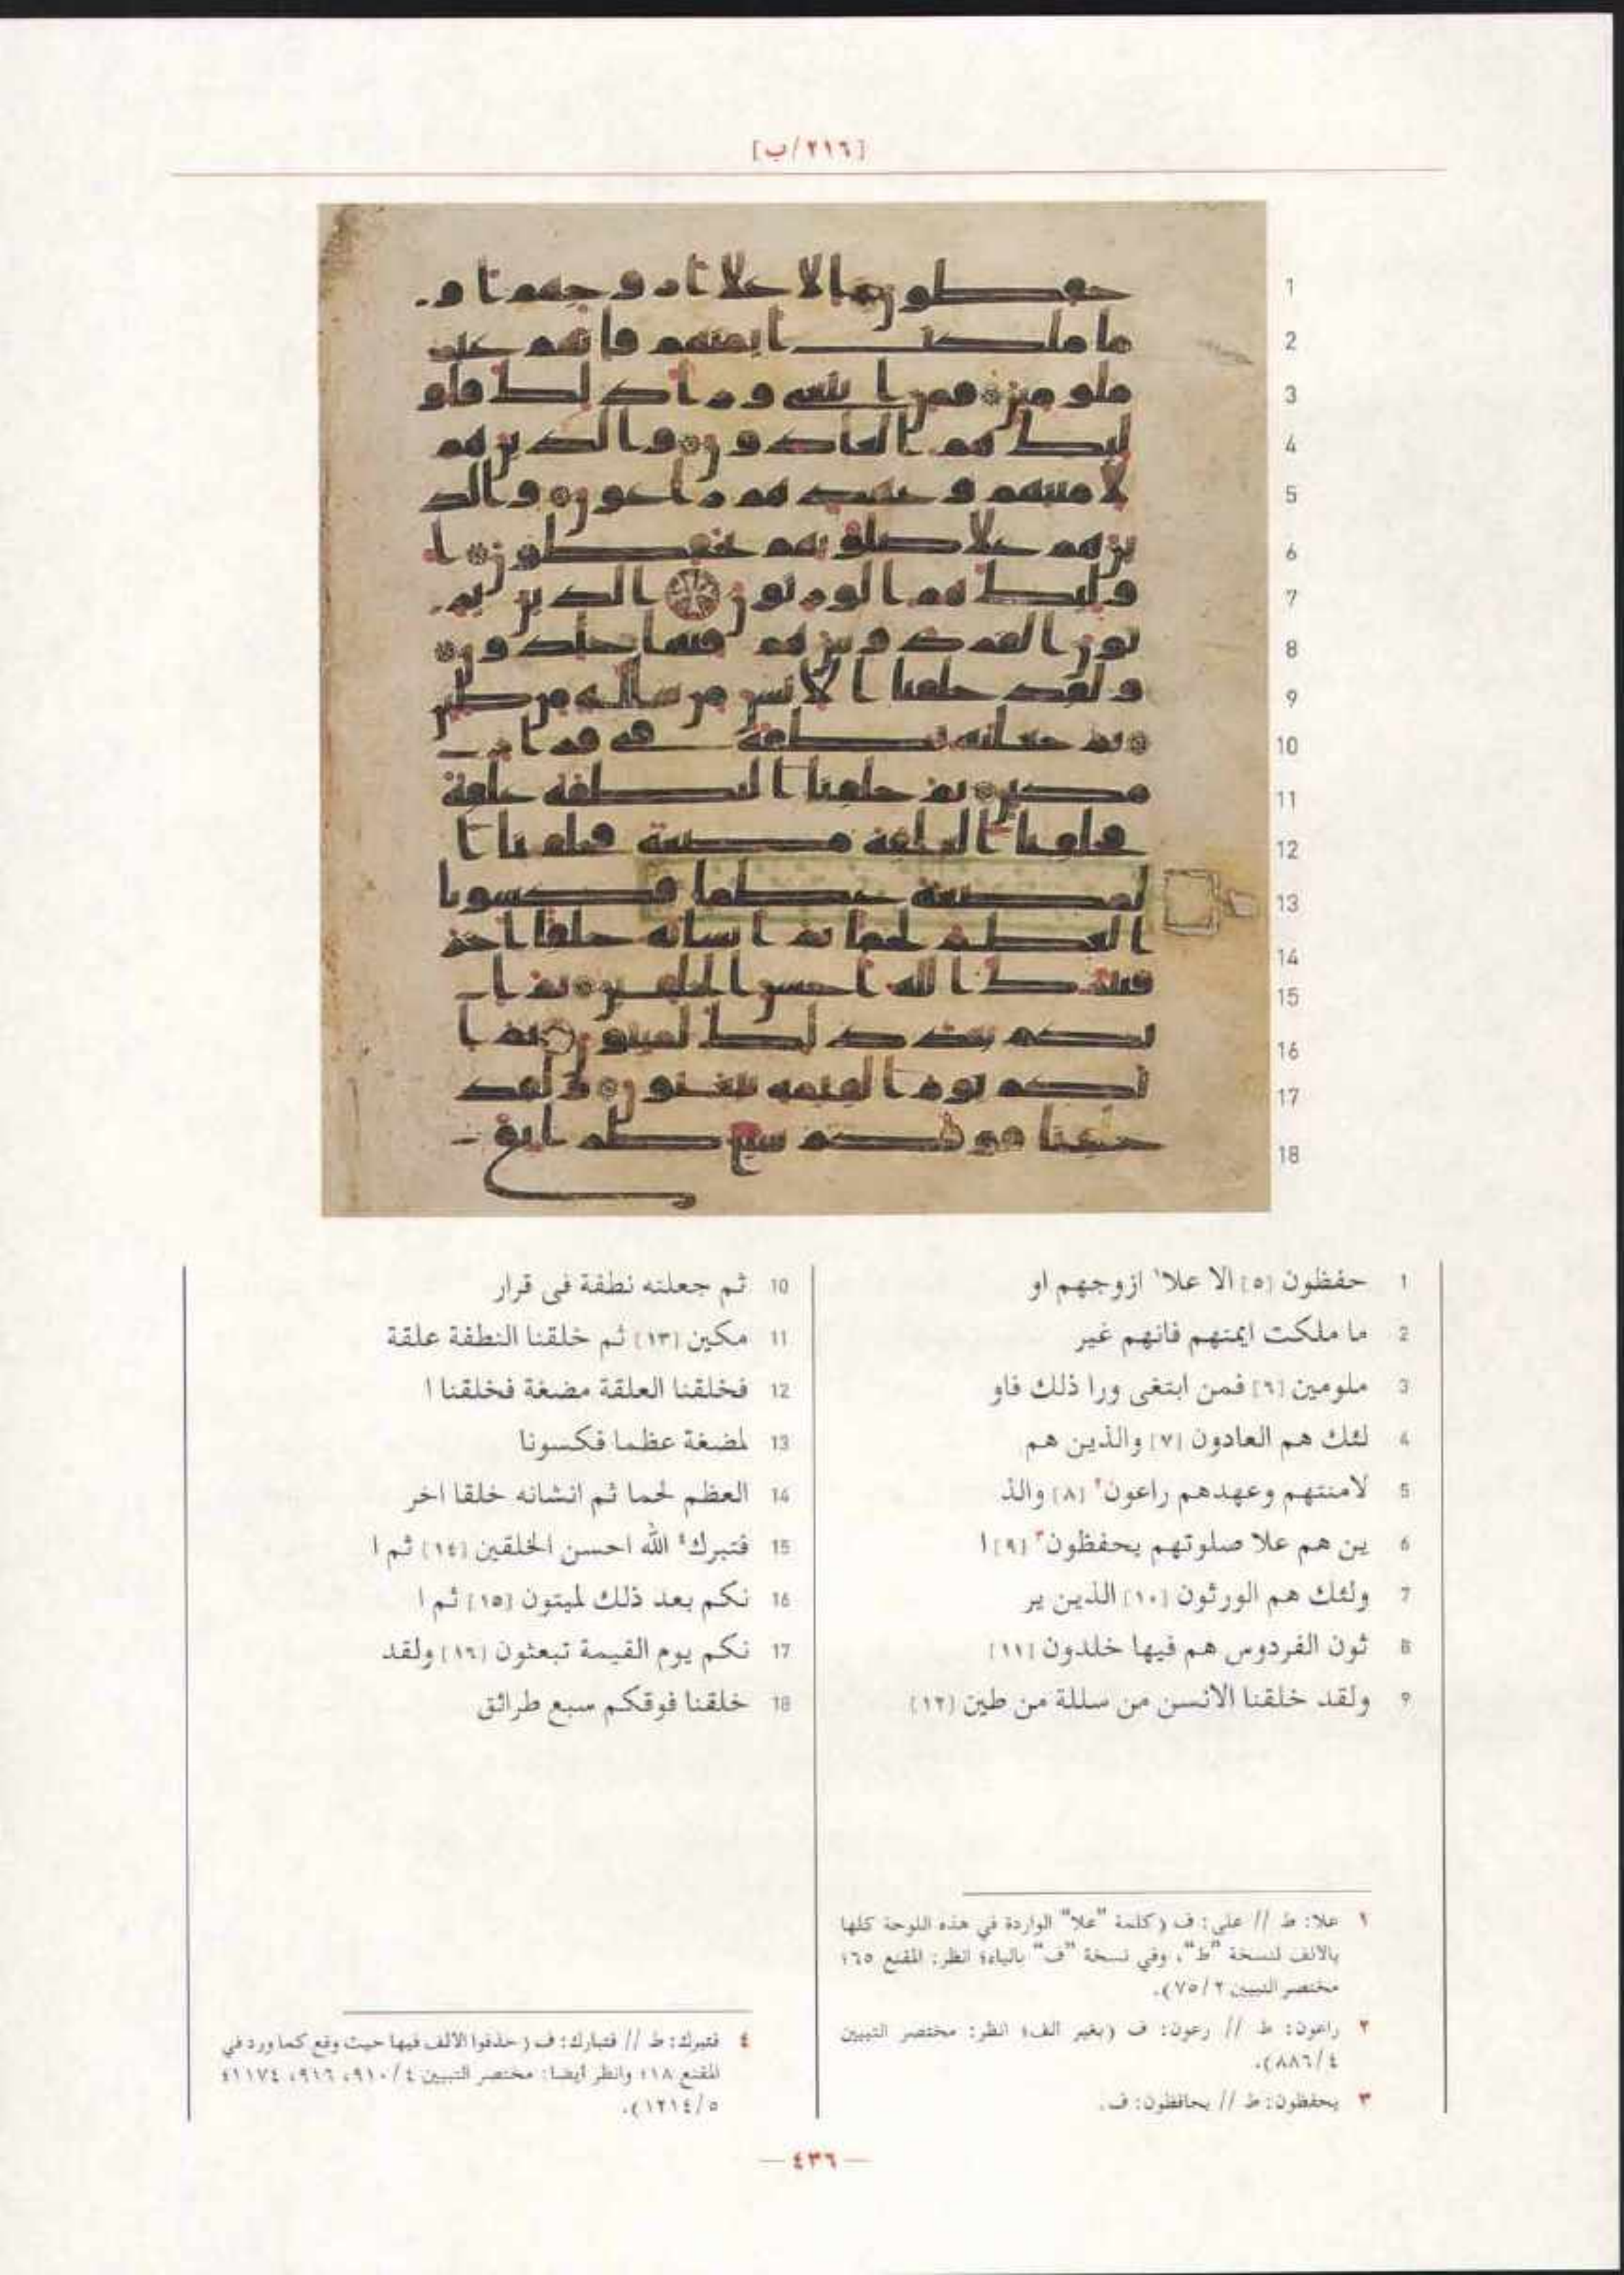 [٢١٦/ب]
1 حفظون [٥] الا علا١ ازوجهم او
2 ما ملكت ايمنهم فانهم غير
3 ملومين [٦] فمن ابتغى ورا ذلك فاو
4 لئك هم العادون [٧] والذين هم
5 لامنتهم وعهدهم راعون٢ [٨] والذ
6 ين هم علا صلوتهم يحفظون٣ [٩] ا
7 ولئك هم الورثون [١٠] الذين ير
8 ثون الفردوس هم فيها خلدون [١١]
9 ولقد خلقنا الانسن من سللة من طين [١٢]
10 ثم جعلنه نطفة فى قرار
11 مكين [١٣] ثم خلقنا النطفة علقة
12 فخلقنا العلقة مضغة فخلقنا ا
13 لمضغة عظما فكسونا
14 العظم لحما ثم انشانه خلقا اخر
15 فتبرك٤ الله احسن الخلقين [١٤] ثم ا
16 نكم بعد ذلك لميتون [١٥] ثم ا
17 نكم يوم القيمة تبعثون [١٦] ولقد
18 خلقنا فوقكم سبع طرائق
١ علا: ط // على: ف (كلمة "علا" الواردة في هذه اللوحة كلها
بالألف لنسخة "ط"، وفي نسخة "ف" بالياء؛ انظر: المقنع ٦٥؛
مختصر التبيين ٧٥/٢).
٢ راعون: ط // رعون: ف (بغير الف؛ انظر: مختصر التبيين
٨٨٦/٤).
٣ يحفظون: ط // يحافظون: ف.
٤ فتبرك: ط // فتبارك: ف (حذفوا الالف فيها حيث وقع كما ورد في
المقنع ١٨؛ وانظر أيضا: مختصر التبيين ٩١٠/٤، ٩١٦، ١١٧٤؛
١٢١٤/٥).
— ٤٣٦ —